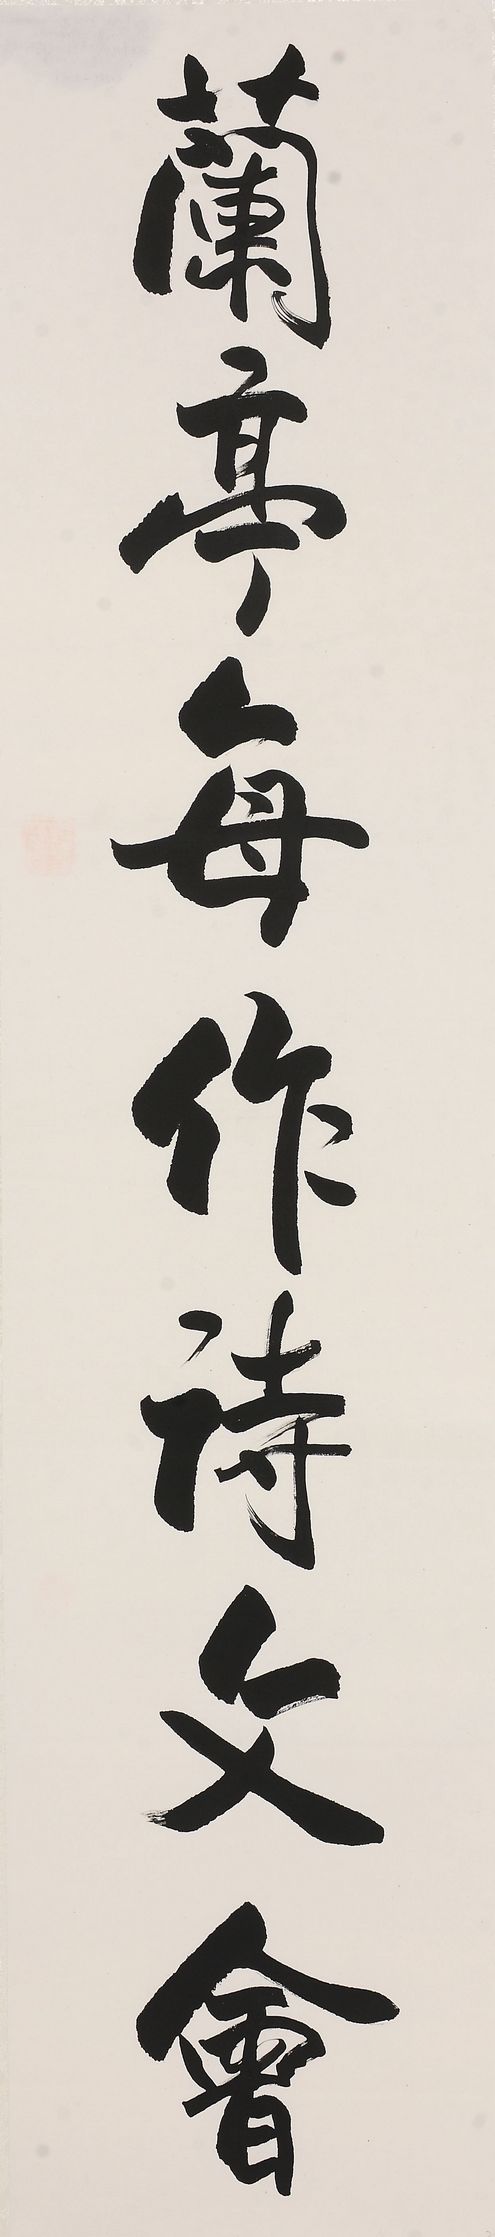 蘭亭每作詩文會